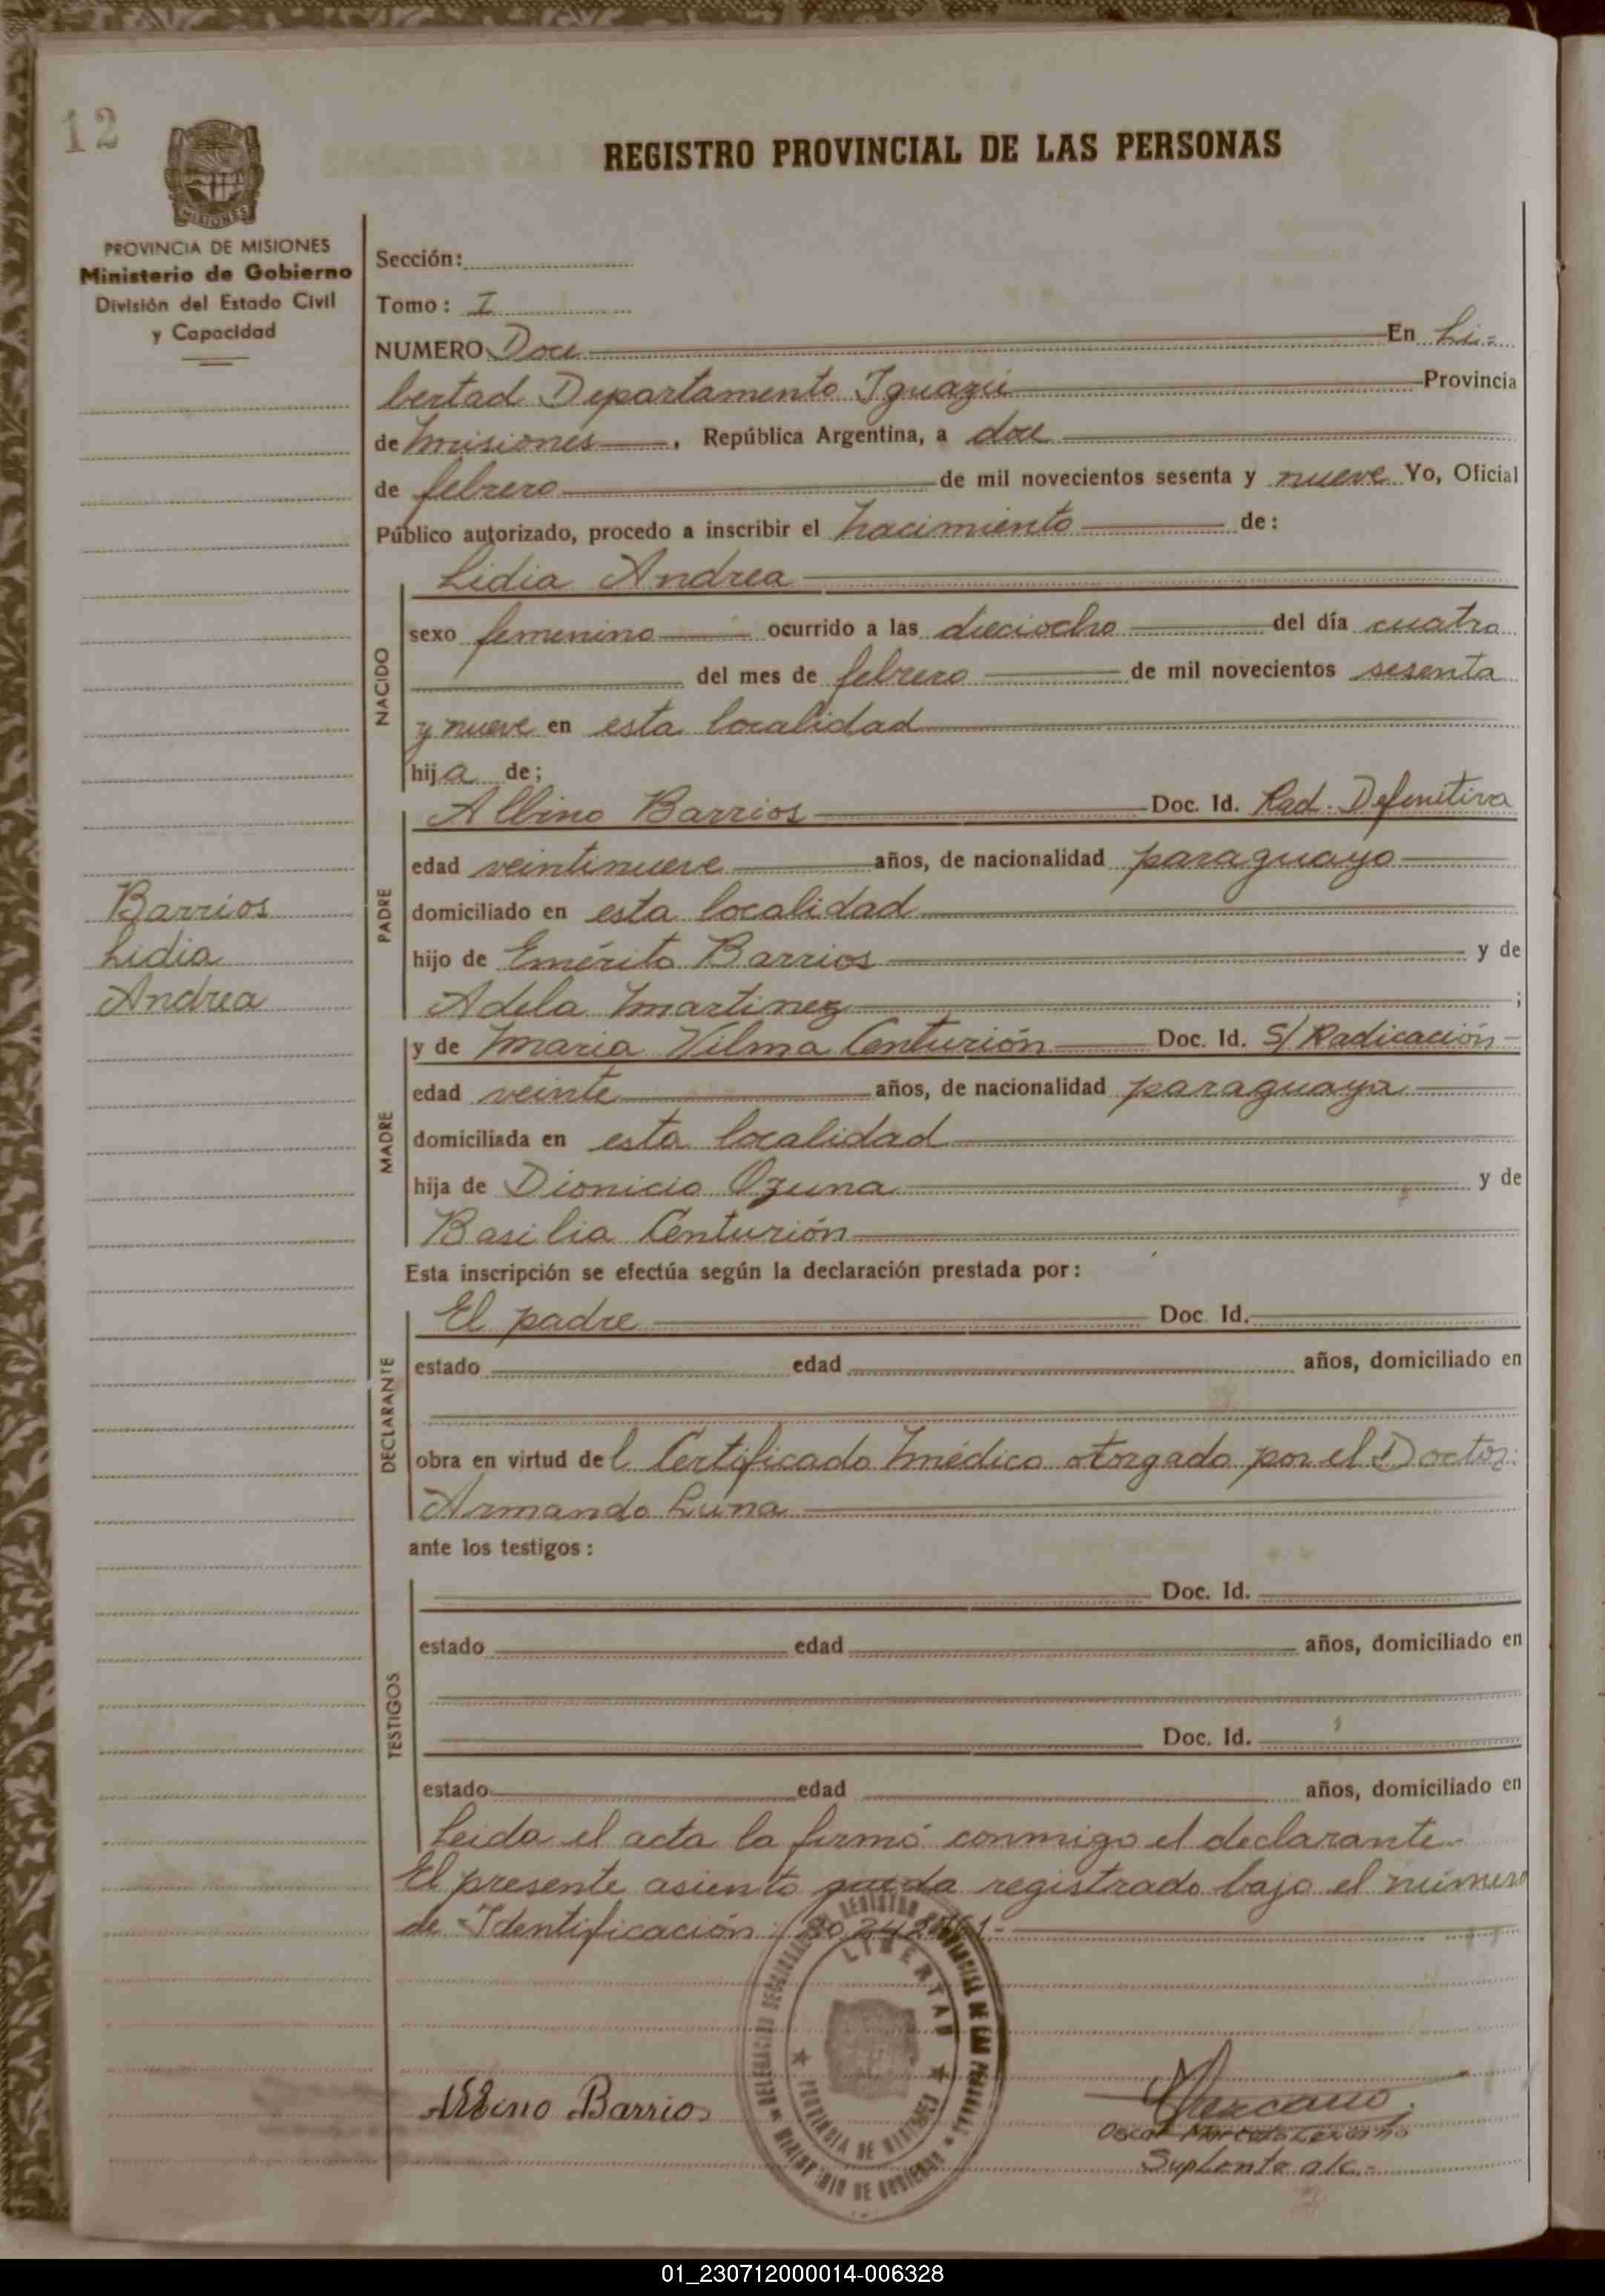 12
REGISTRO PROVINCIAL DE LAS PERSONAS
MISIONES
PROVINCIA DE MISIONES
Ministerio de Gobierno
División del Estado Civil
y Capacidad
Sección:
Tomo: I
NUMERO Doce En Li-
bertad Departamento Iguazú Provincia
de Misiones, República Argentina, a doce
de febrero de mil novecientos sesenta y nueve Yo, Oficial
Público autorizado, procedo a inscribir el Nacimiento de:
Lidia Andrea
NACIDO
sexo femenino ocurrido a las dieciocho del día cuatro
del mes de febrero de mil novecientos sesenta
y nueve en esta localidad
hija de;
Albino Barrios Doc. Id. Rad. Definitiva
PADRE
edad veintinueve años, de nacionalidad paraguayo
domiciliado en esta localidad
hijo de Emérito Barrios y de
Adela Martinez;
Barrios
Lidia
Andrea
y de Maria Vilma Centurión Doc. Id. S/ Radicación
MADRE
edad veinte años, de nacionalidad paraguaya
domiciliada en esta localidad
hija de Dionicio Ozuna y de
Basilia Centurión
Esta inscripción se efectúa según la declaración prestada por:
El padre Doc. Id.
DECLARANTE
estado edad años, domiciliado en
obra en virtud del Certificado Médico otorgado por el Doctor:
Armando Luna
ante los testigos:
Doc. Id.
TESTIGOS
estado edad años, domiciliado en
Doc. Id.
estado edad años, domiciliado en
Leida el acta la firmó conmigo el declarante
El presente asiento queda registrado bajo el número
de Identificación:
LIBERTAD
PROVINCIA DE MISIONES
MINISTERIO DE GOBIERNO
Albino Barrios
Oscar
Suplente a/c.-
01_230712000014-006328